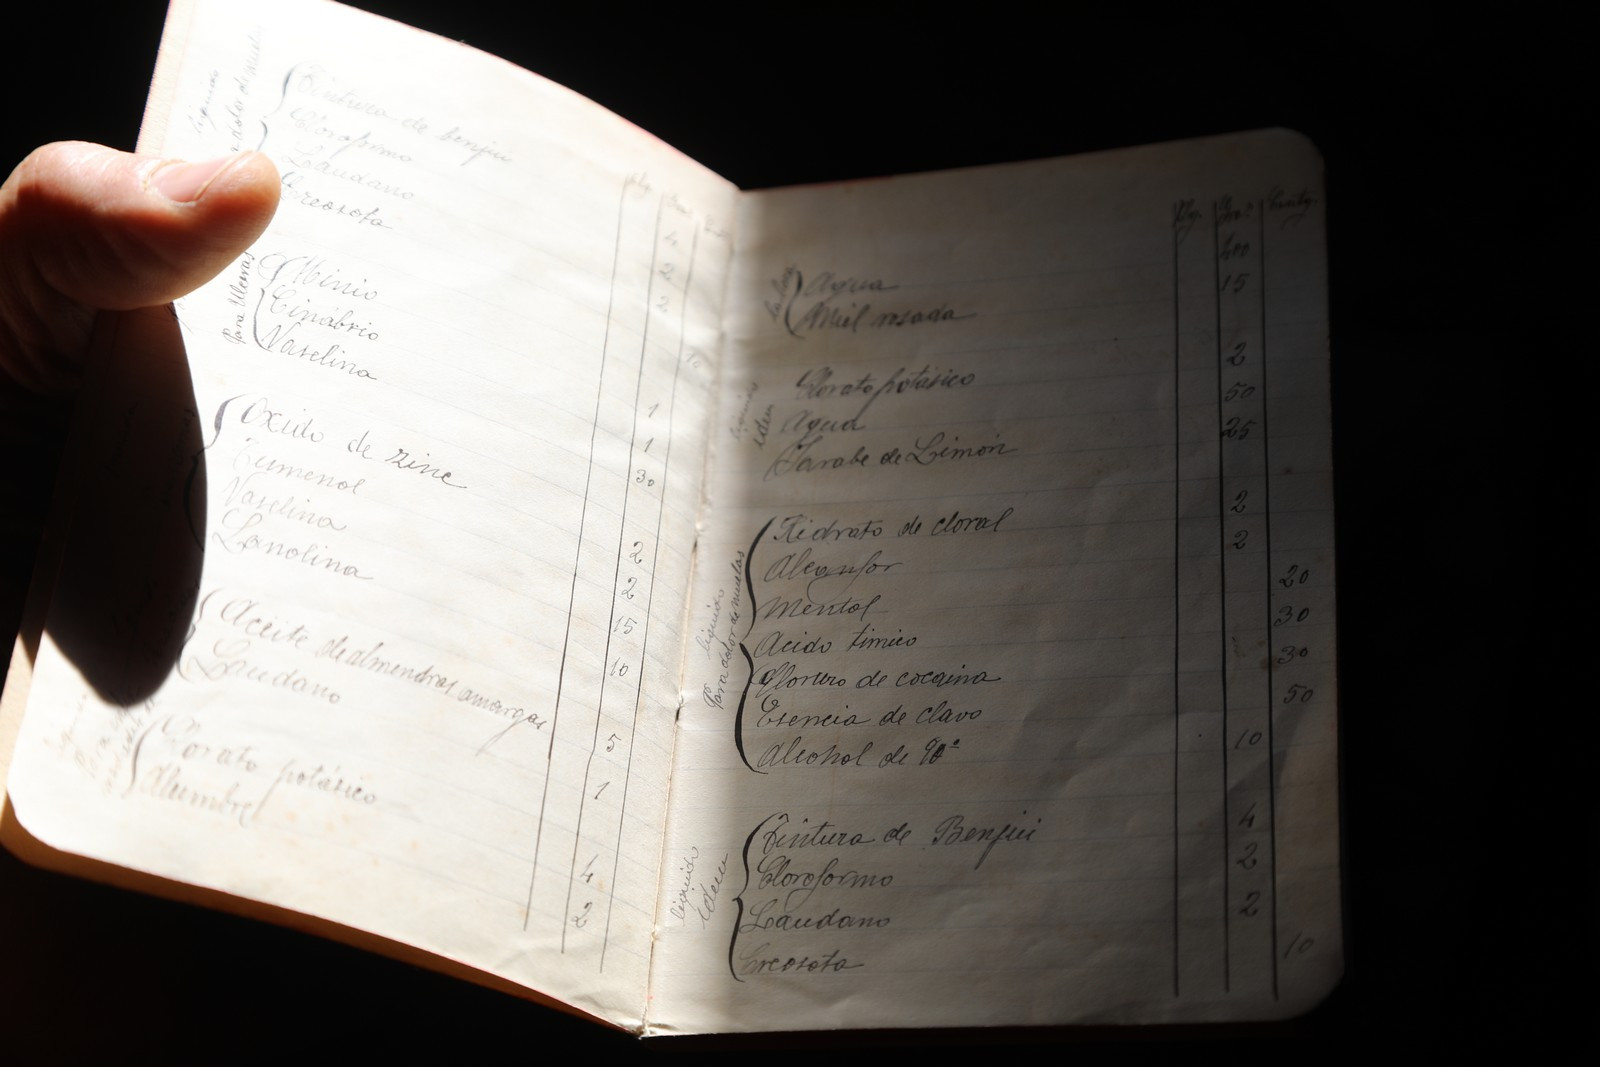 liquido
dolor de muelas
Tintura de benjui
Cloroformo
Laudano
Creosota
4
2
2
10
Para Ulceras
Minio
Cinabrio
Vaselina
1
1
30
Oxido de zinc
Tumenol
Vaselina
Lanolina
2
2
15
10
Aceite de almendras amargas
Laudano
5
1
Para
Clorato potásico
Alumbre
4
2
Grs. Centg.
Agua 400
Miel rosada 15
liquido
idem
Clorato potásico 2
Agua 50
Jarabe de Limón 25
liquido
Para dolor de muelas
Hidrato de cloral 2
Alcanfor 2
Mentol 20
Acido timico 30
Cloruro de cocaina 30
Esencia de clavo 50
Alcohol de 90° 10
liquido
idem
Tintura de Benjui 4
Cloroformo 2
Laudano 2
Creosota 10